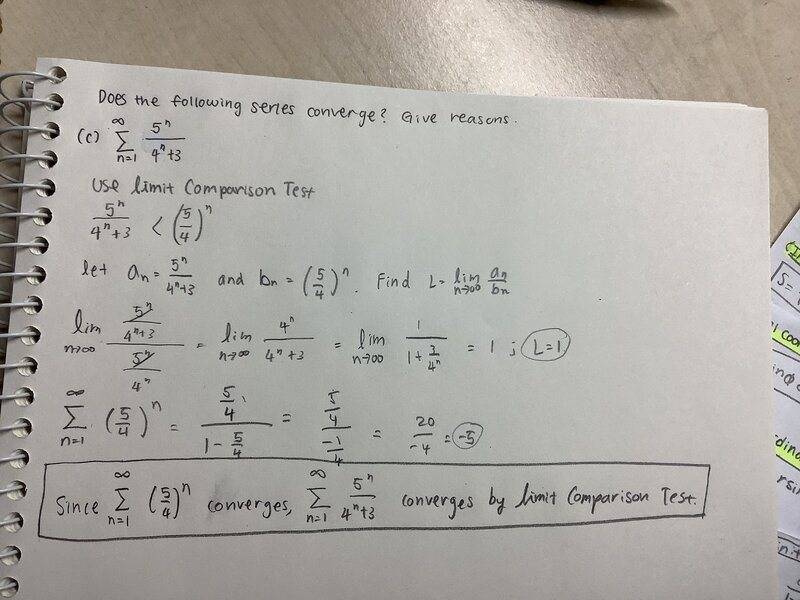 Does the following series converge? Give reasons.
(c) ∑_{n=1}^{∞} 5^n/(4^n+3)
Use limit Comparison Test
5^n/(4^n+3) < (5/4)^n
let a_n = 5^n/(4^n+3) and b_n = (5/4)^n. Find L = lim_{n→∞} a_n/b_n
lim_{n→∞} (5^n/(4^n+3))/(5^n/4^n) = lim_{n→∞} 4^n/(4^n+3) = lim_{n→∞} 1/(1+3/4^n) = 1 ; L=1
∑_{n=1}^{∞} (5/4)^n = (5/4)/(1-5/4) = (5/4)/(-1/4) = 20/-4 = -5
Since ∑_{n=1}^{∞} (5/4)^n converges, ∑_{n=1}^{∞} 5^n/(4^n+3) converges by limit Comparison Test.